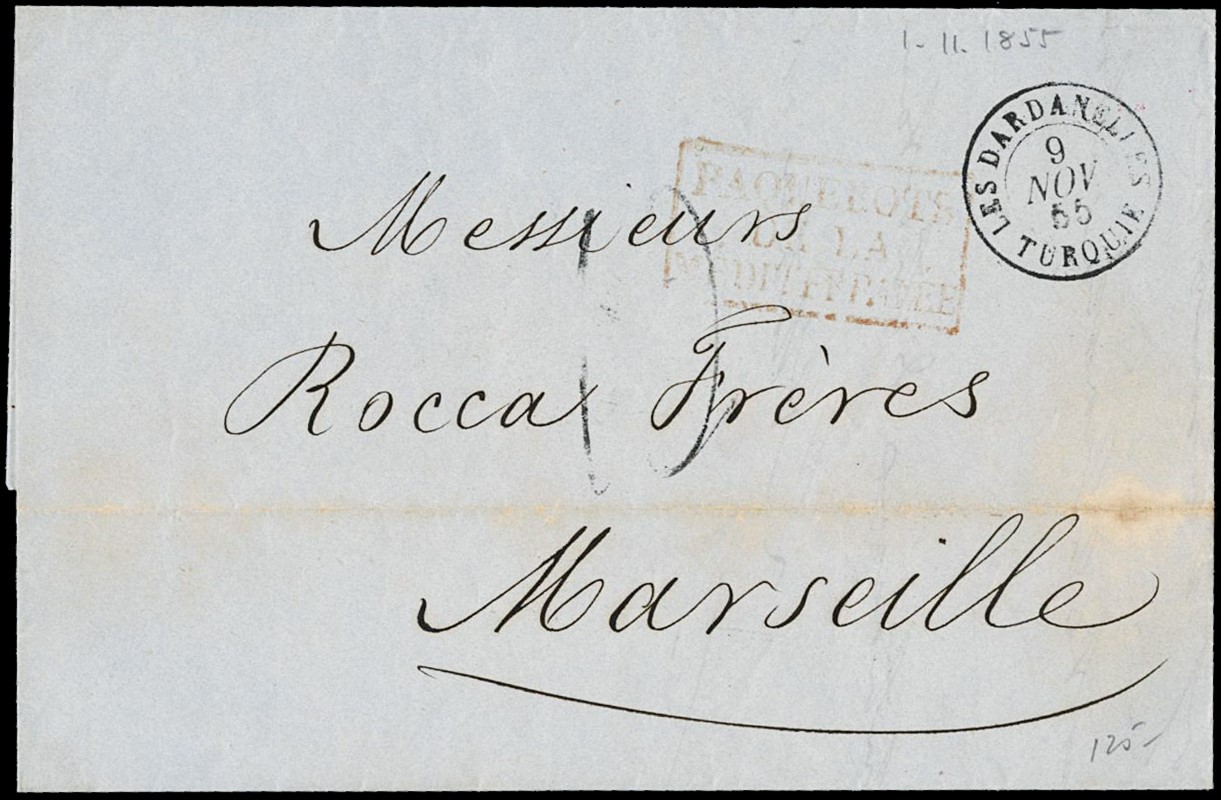 1-11.1855
LES DARDANELLES
9
NOV
55
TURQUIE
PAQUEBOTS
DE LA
MÉDITERRANÉE
Messieurs
Rocca Frères
Marseille
125-